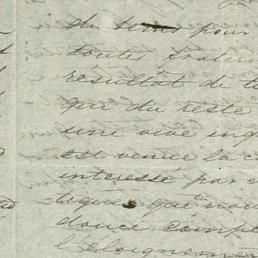 du tems pour
toutes frater
résultat de t
qui du reste
une vive inq
est venue la c
intéressé par c
tique que nou
donc compt
l'éloignemen